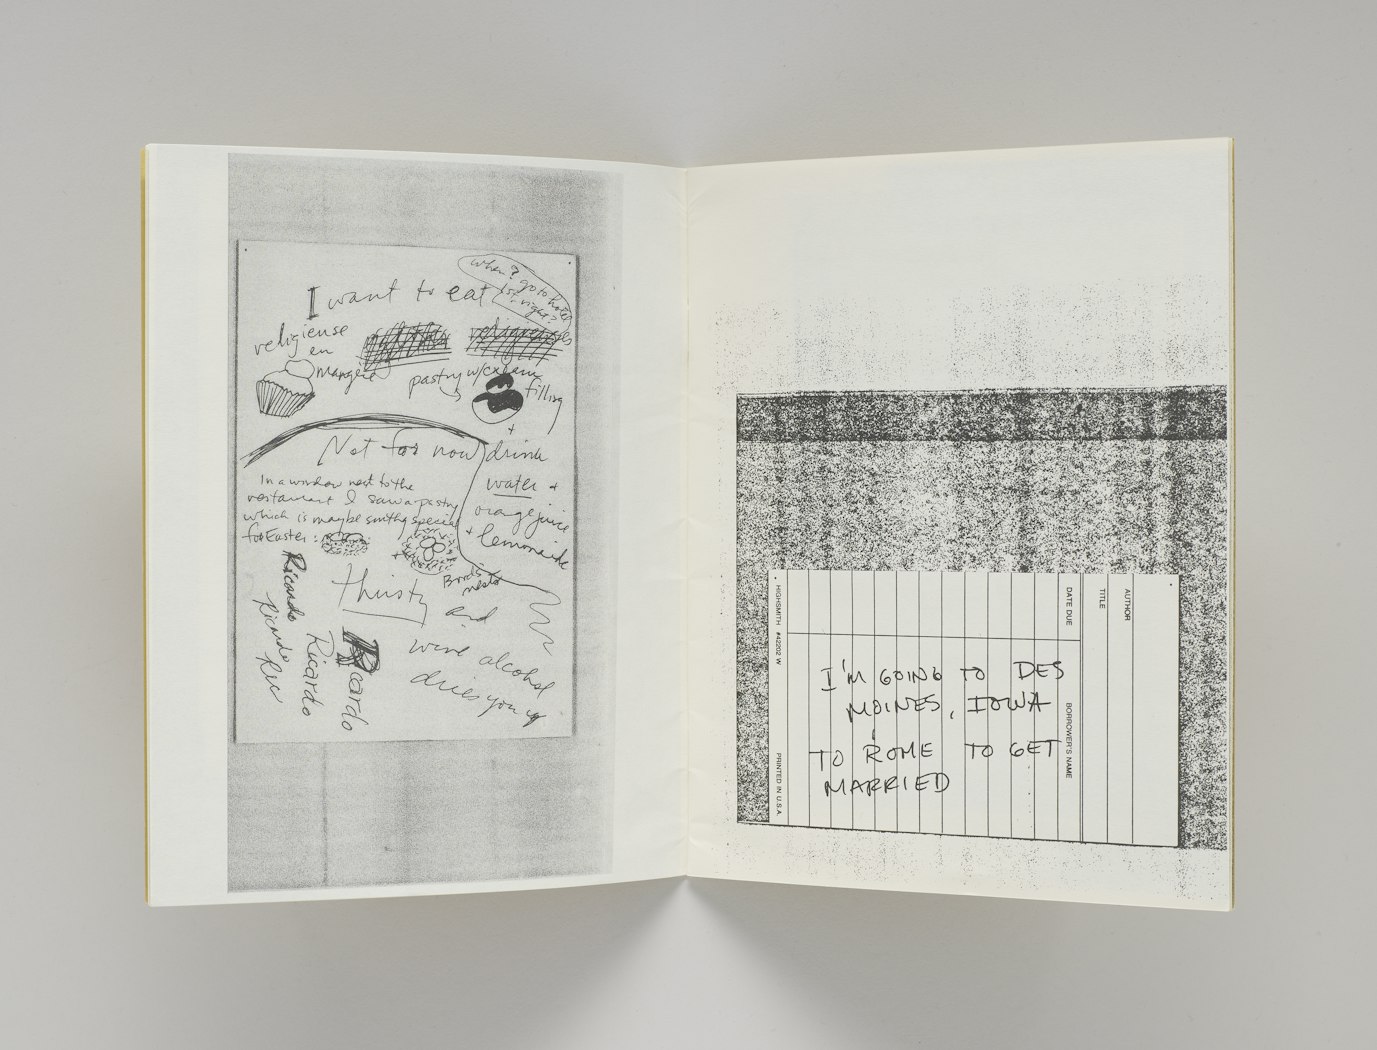 when? go to hotel
1st - right?
I want to eat
religieuse
en
pastry w/cream
filling
+
Not for now
drink
water +
orange juice
+ lemonade
In a window next to the
restaurant I saw a pastry
which is maybe smthg special
for Easter:
+
Bird's
nests
thirsty
and
wine alcohol
dries you up
Ricardo
Ricardo
Ric
Ricardo
Ricardo
AUTHOR
TITLE
DATE DUE
BORROWER'S NAME
I'M GOING TO DES
MOINES, IOWA
TO ROME TO GET
MARRIED
HIGHSMITH #42202 W
PRINTED IN U.S.A.